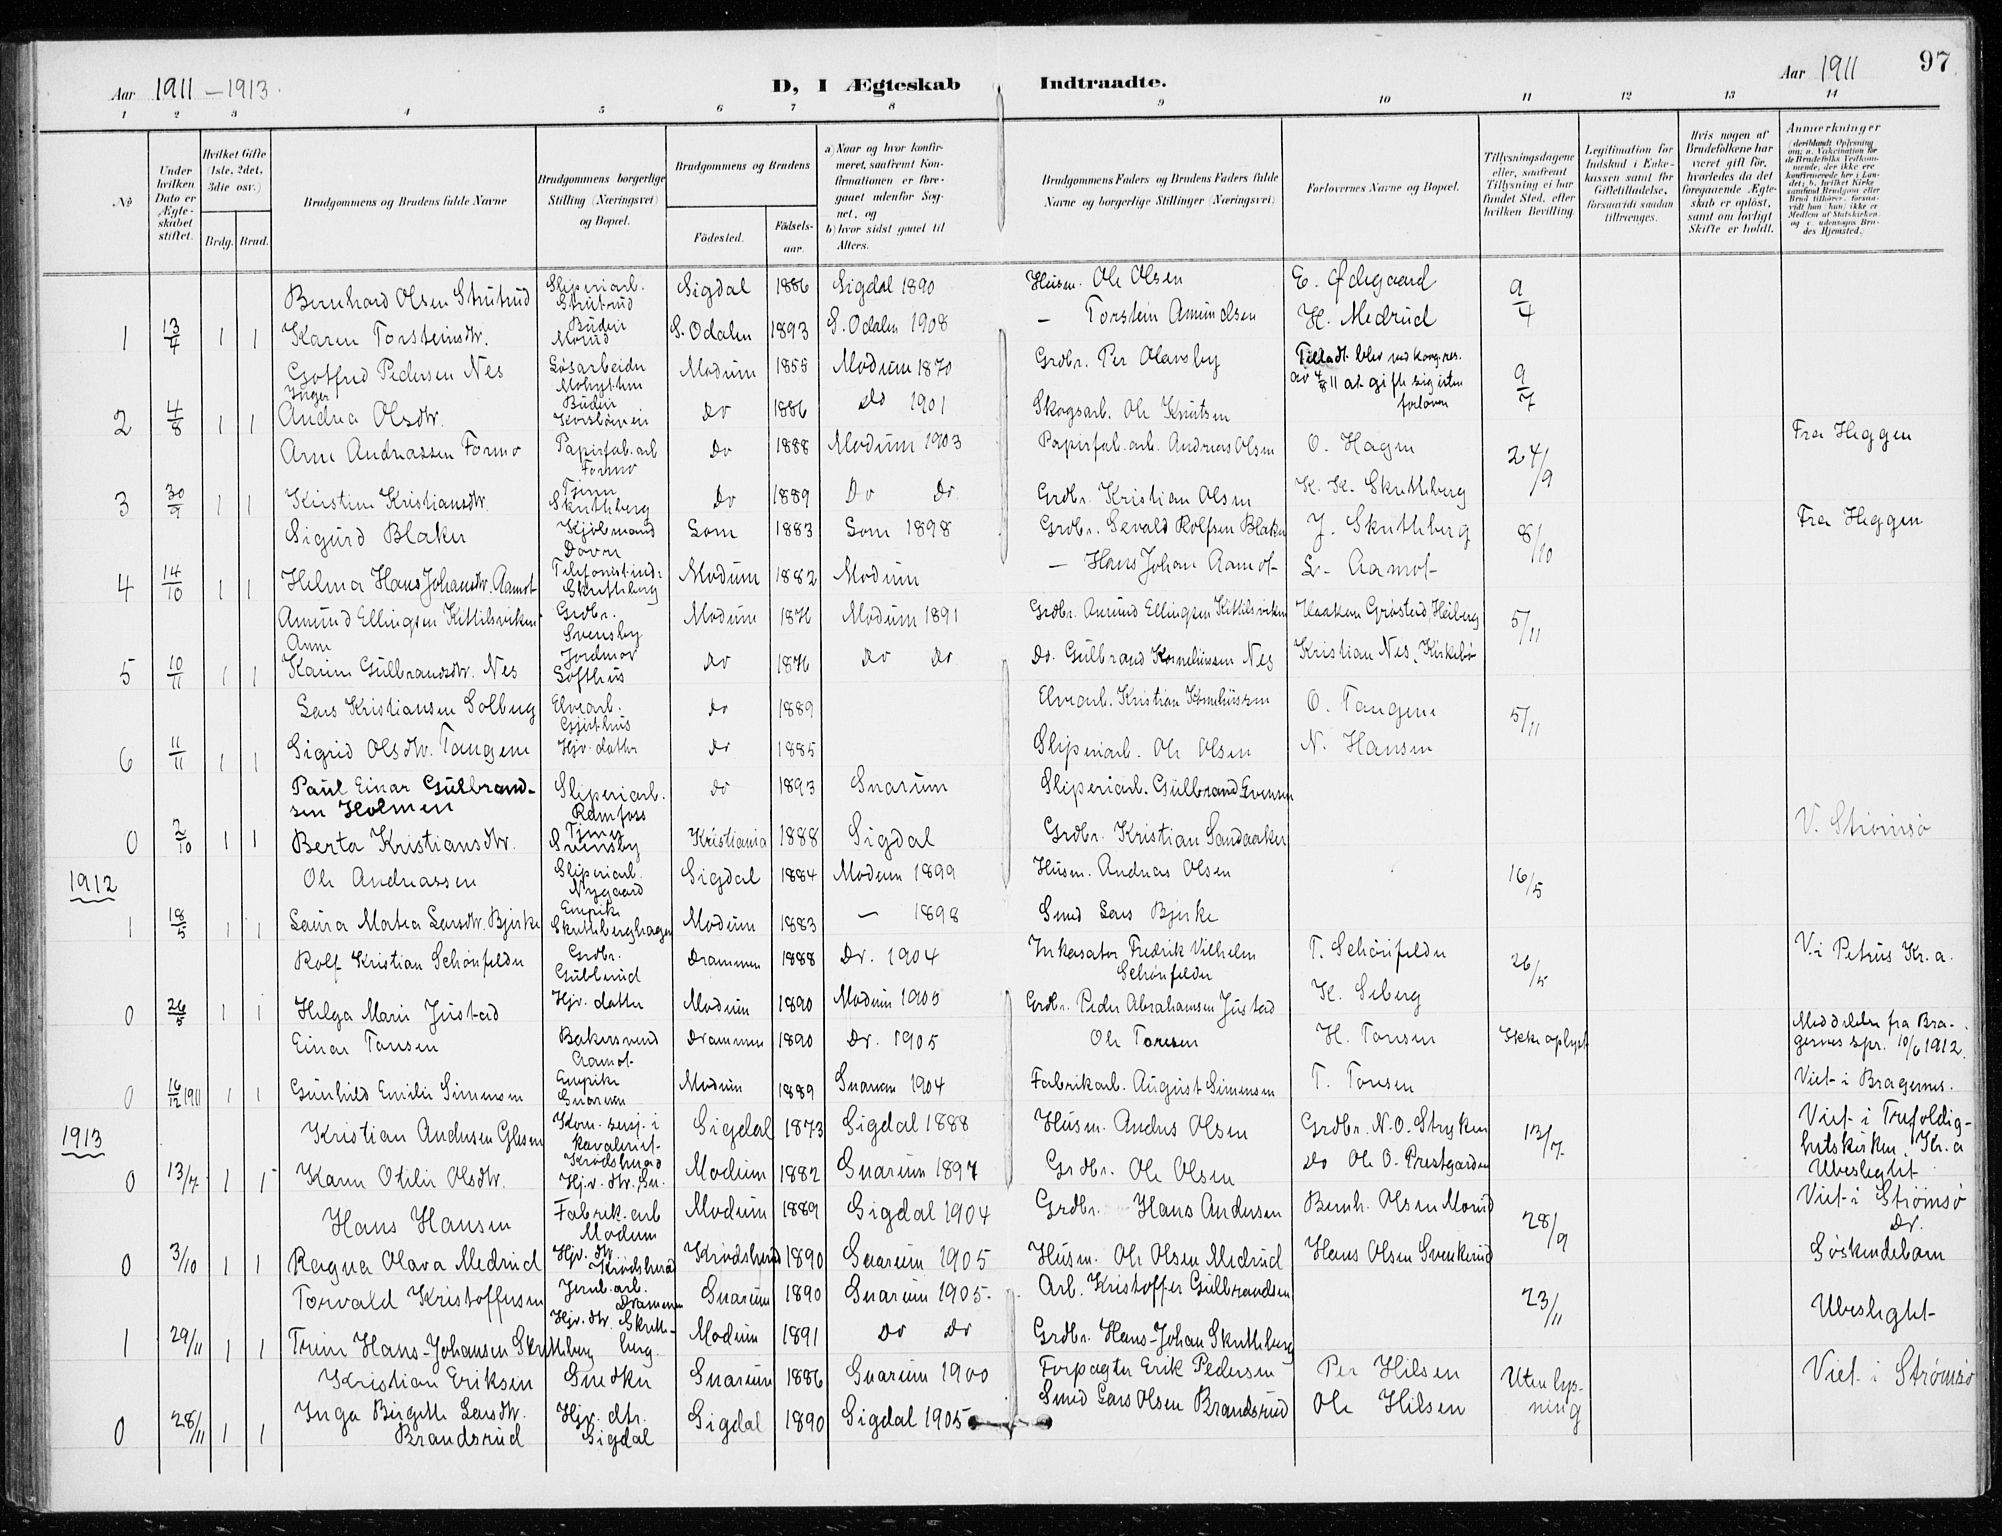 Aar 1911 – 1913.
D, I Ægteskab Indtraadte.
Aar 1911
97
1 2 3 4 5 6 7 8 9 10 11 12 13 14
№
Under hvilken Dato er Ægteskabet stiftet.
Hvilket Gifte (1ste, 2det, 3die osv.)
Brdg. Brud.
Brudgommens og Brudens fulde Navne
Brudgommens borgerlige Stilling (Næringsvei) og Bopæl.
Brudgommens og Brudens
Fødested.
Fødsels-aar.
a) Naar og hvor konfirmeret, saafremt Konfirmationen er foregaaet udenfor Sognet, og
b) hvor sidst gaaet til Alters.
Brudgommens Faders og Brudens Faders fulde Navne og borgerlige Stillinger (Næringsvei)
Forlovernes Navne og Bopæl.
Tillysningsdagene eller, saafremt Tillysning ei har fundet Sted, efter hvilken Bevilling.
Legitimation for Indskud i Enkekassen samt for Giftetilladelse, forsaavidt saadan tiltrænges.
Hvis nogen af Brudefolkene har været gift før, hvorledes da det foregaaende Ægteskab er opløst, samt om lovligt Skifte er holdt.
Anmærkninger
Bernhard Olsen Strutrud Sliperiarb. Strutrud Sigdal 1886 Sigdal 1890 Husm. Ole Olsen E. Ødegaard 9/4
1 13/4 1 1 Karen Torsteinsdtr. Budeie Morud S. Odalen 1893 S. Odalen 1908 – Torstein Amundsen H. Medrud
Gotfred Pedersen Nes Løsarbeider Modum 1855 Modum 1870 Grdbr. Per Olavsby Tilladt blev ved kong. res. av 4/8 11 at gifte sig uten forlover 9/7
2 4/8 1 1 Inger Andrea Olsdtr. Budeie do 1886 do 1901 Skogsarb. Ole Knutsen
Arne Andreassen Formo Papirfab. arb. Formo do 1888 Modum 1903 Papirfab. arb. Andreas Olsen O. Hagen 24/9 Fra Heggen
3 30/9 1 1 Kirstine Kristiansdtr. Tjene Skuthberg do 1889 Do Do Grdbr. Kristian Olsen K. K. Skuthberg
Sigurd Blaker Kjøbmand Dovre Lom 1883 Lom 1898 Grdbr. Sevald Rolfsen Blaker J. Skuthberg 8/10 Fra Heggen
4 14/10 1 1 Helma Hans Johansdtr. Aamot Telefonistinde Skuthberg Modum 1882 Modum – Hans Johan Aamot L. Aamot
Amund Ellingsen Kittilsviken Grdbr. Svensby Modum 1876 Modum 1891 Grdbr. Amund Ellingsen Kittilsviken Haaken Grøsterd, Heiberg 5/11
5 10/11 1 1 Anne Karine Gulbrandsdtr. Nes Jordmor Lofthus do 1876 do do Do. Gulbrand Korneliussen Nes Kristian Nes, Kirkebø
Lars Kristiansen Solberg Elvearb. Gjethus do 1889 Elvearb. Kristian Korneliussen O. Tangen 5/11
6 11/11 1 1 Sigrid Olsdtr. Tangen Hjv. datter do 1885 Sliperiarb. Ole Olsen N. Hansen
Paul Einar Gulbrandsen Holmen Sliperiarb. Ramfoss do 1893 Snarum Sliperiarb. Gulbrand Evensen
0 2/10 1 1 Berta Kristiansdtr. Tjene Svensby Kristiania 1888 Sigdal Grdbr. Kristian Sandaaker V. Strømsø
1912 Ole Andreassen Sliperiarb. Nygaard Sigdal 1884 Modum 1899 Husm. Andreas Olsen 16/5
1 18/5 1 1 Laura Martea Larsdtr. Bjerke Enpike Skuthberghagen Modum 1883 – 1898 Smed Lars Bjerke
Rolf Kristian Schønfelder Grdbr. Gubberud Drammen 1888 Dr. 1904 Inkasator Fredrik Vilhelm Schønfelder T. Schønfelder 26/5 V. i Petrus Kr.a.
0 26/5 1 1 Helga Marie Justad Hjv. datter Modum 1890 Modum 1905 Grdbr. Peder Abrahamsen Justad K. Seberg
Einar Toresen Bakersvend Aamot Drammen 1890 Dr. 1905 Ole Toresen H. Toresen Ikke oplyst Meddelelse fra Bragernes spr. 10/6 1912.
0 16/12 1911 1 1 Gunhild Emilie Simensen Enpike Snarum Modum 1889 Snarum 1904 Fabrikarb. August Simensen T. Toresen Viet i Bragernes.
1913 Kristian Andersen Glesne Korn. serj. i Kavaleriet Krødsherad Sigdal 1873 Sigdal 1888 Husm. Anders Olsen Grdbr. N. O. Stryken 13/7. Viet i Trefoldighetskirken, Kr.a
0 13/7 1 1 Karen Otilie Olsdtr. Hjv. dtr. Sn. Modum 1882 Snarum 1897 Grdbr. Ole Olsen do Ole O. Prestgarden Ubeslegtet
Hans Hansen Fabrik. arb Modum Modum 1889 Sigdal 1904 Grdbr. Hans Andersen Bernh. Olsen Morud 28/9 Viet i Strømsø Dr.
0 3/10 1 1 Ragna Olava Medrud Hjv. dtr. Krødsherad Krødsherad 1890 Snarum 1905 Husm. Ole Olsen Medrud Hans Olsen Svenkerud Søskendebarn
Torvald Kristoffersen Jernb. arb. Drammen Snarum 1890 Snarum 1905. Arb. Kristoffer Gulbrandsen 23/11 Ubeslegtet
1 29/11 1 1 Trine Hans-Johansen Skuthberg Hjv. dtr. Skuthberg. Modum 1891 do do Grdbr. Hans-Johan Skuthberg
Kristian Eriksen Snedker Snarum 1886 Snarum 1900 Forpagter Erik Pedersen Per Hilsen Uten lysning Viet i Strømsø
0 28/11 1 1 Inga Birgitte Larsdtr. Brandsrud Hjv. dtr. Sigdal Sigdal 1890 Sigdal 1905 Smed Lars Olsen Brandsrud Ole Hilsen